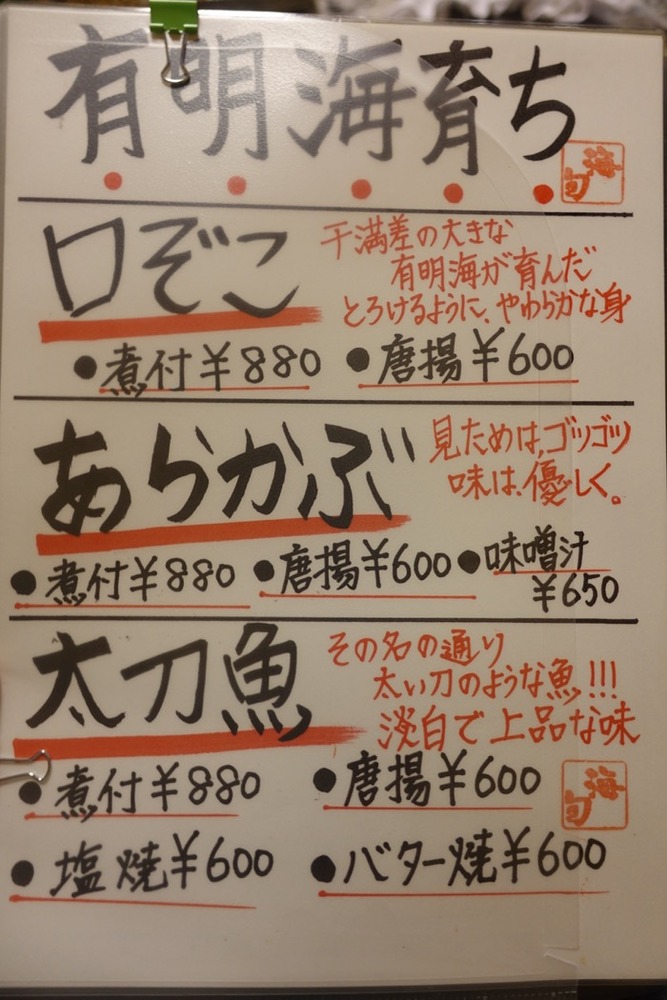 有明海育ち
海旬
口ぞこ
干満差の大きな
有明海が育んだ
とろけるように、やわらかな身
●煮付¥880 ●唐揚¥600
あらかぶ
見ためは、ゴツゴツ
味は、優しく。
●煮付¥880 ●唐揚¥600 ●味噌汁
¥650
太刀魚
その名の通り
太い刀のような魚!!!
淡白で上品な味
●煮付¥880 ●唐揚¥600
海旬
●塩焼¥600 ●バター焼¥600